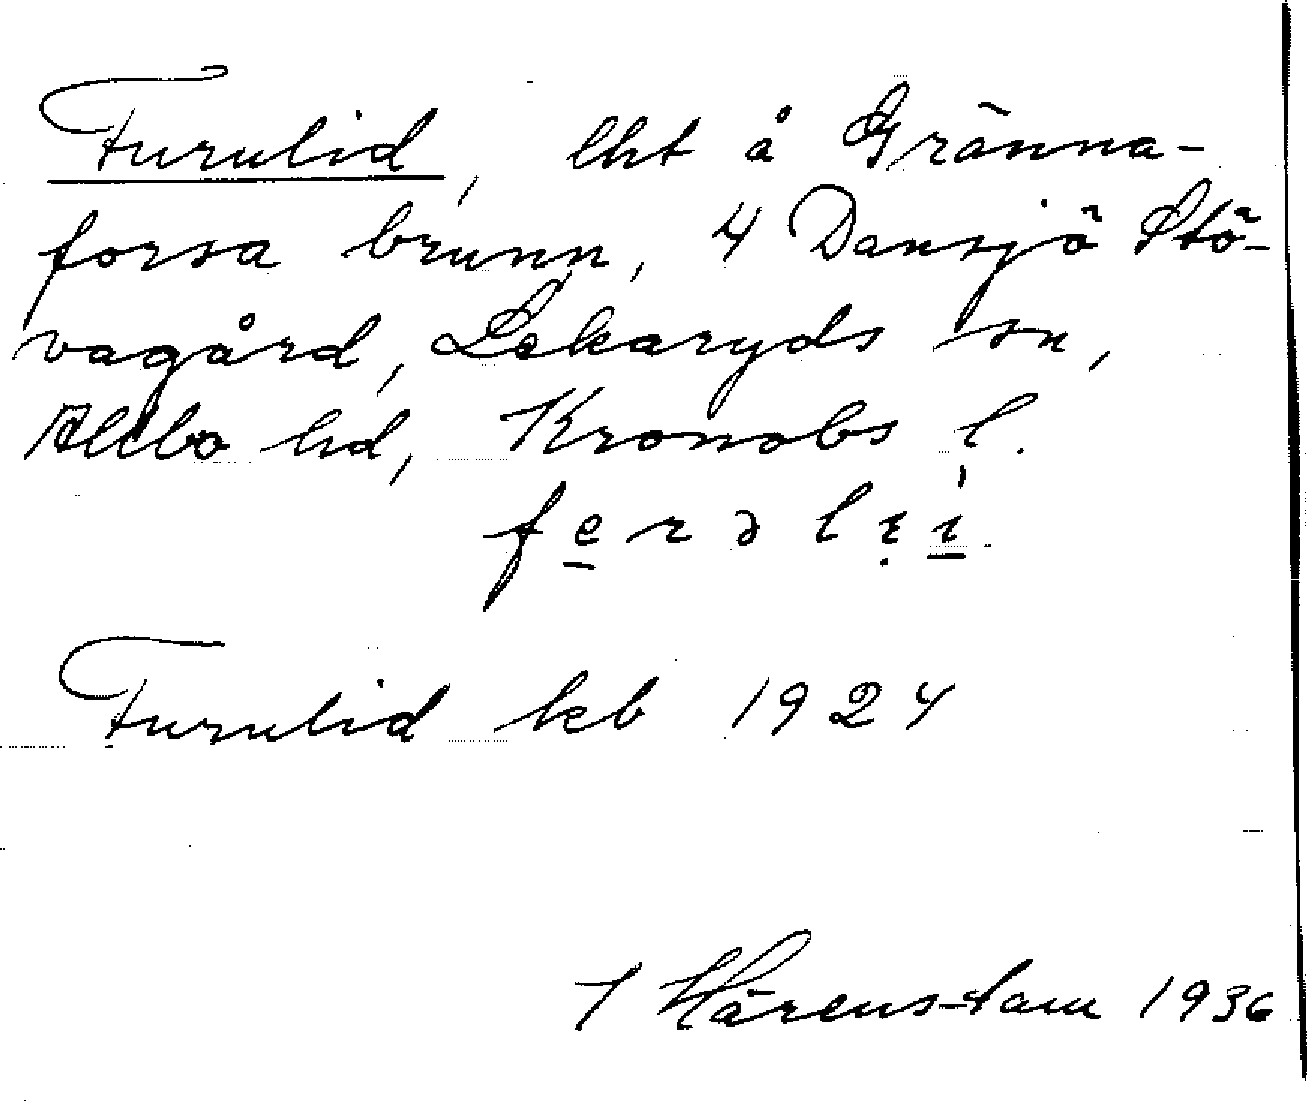 Furulid, lht å Gränna-
forsa brunn, 4 Dansjö Stö-
vagård, Lekaryds sn,
Allbo hd, Kronobs l.
Furulid kb 1924
J Härenstam 1936